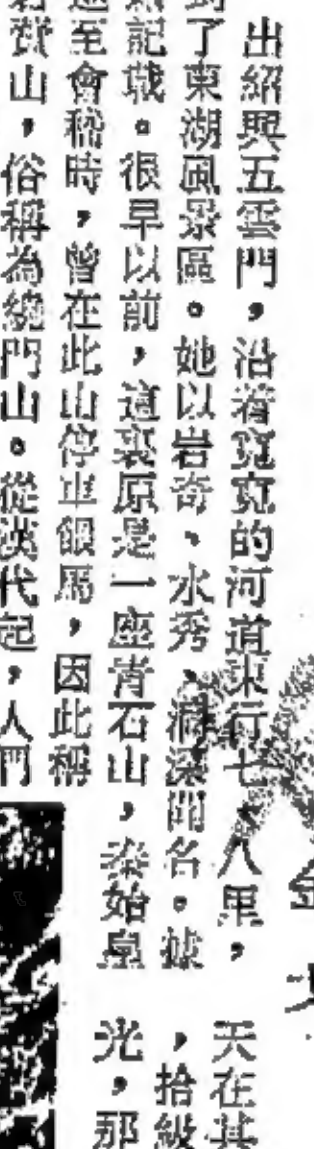 出紹興五雲門，沿着寬寬的河道東行七、八里，
到了東湖風景區。她以岩奇、水秀、洞深聞名。據
記載。很早以前，這裏原是一座青石山，秦始皇
至會稽時，曾在此山停車餵馬，因此稱
山，俗稱為繞門山。從漢代起，人們
天在其
，拾級
光，那